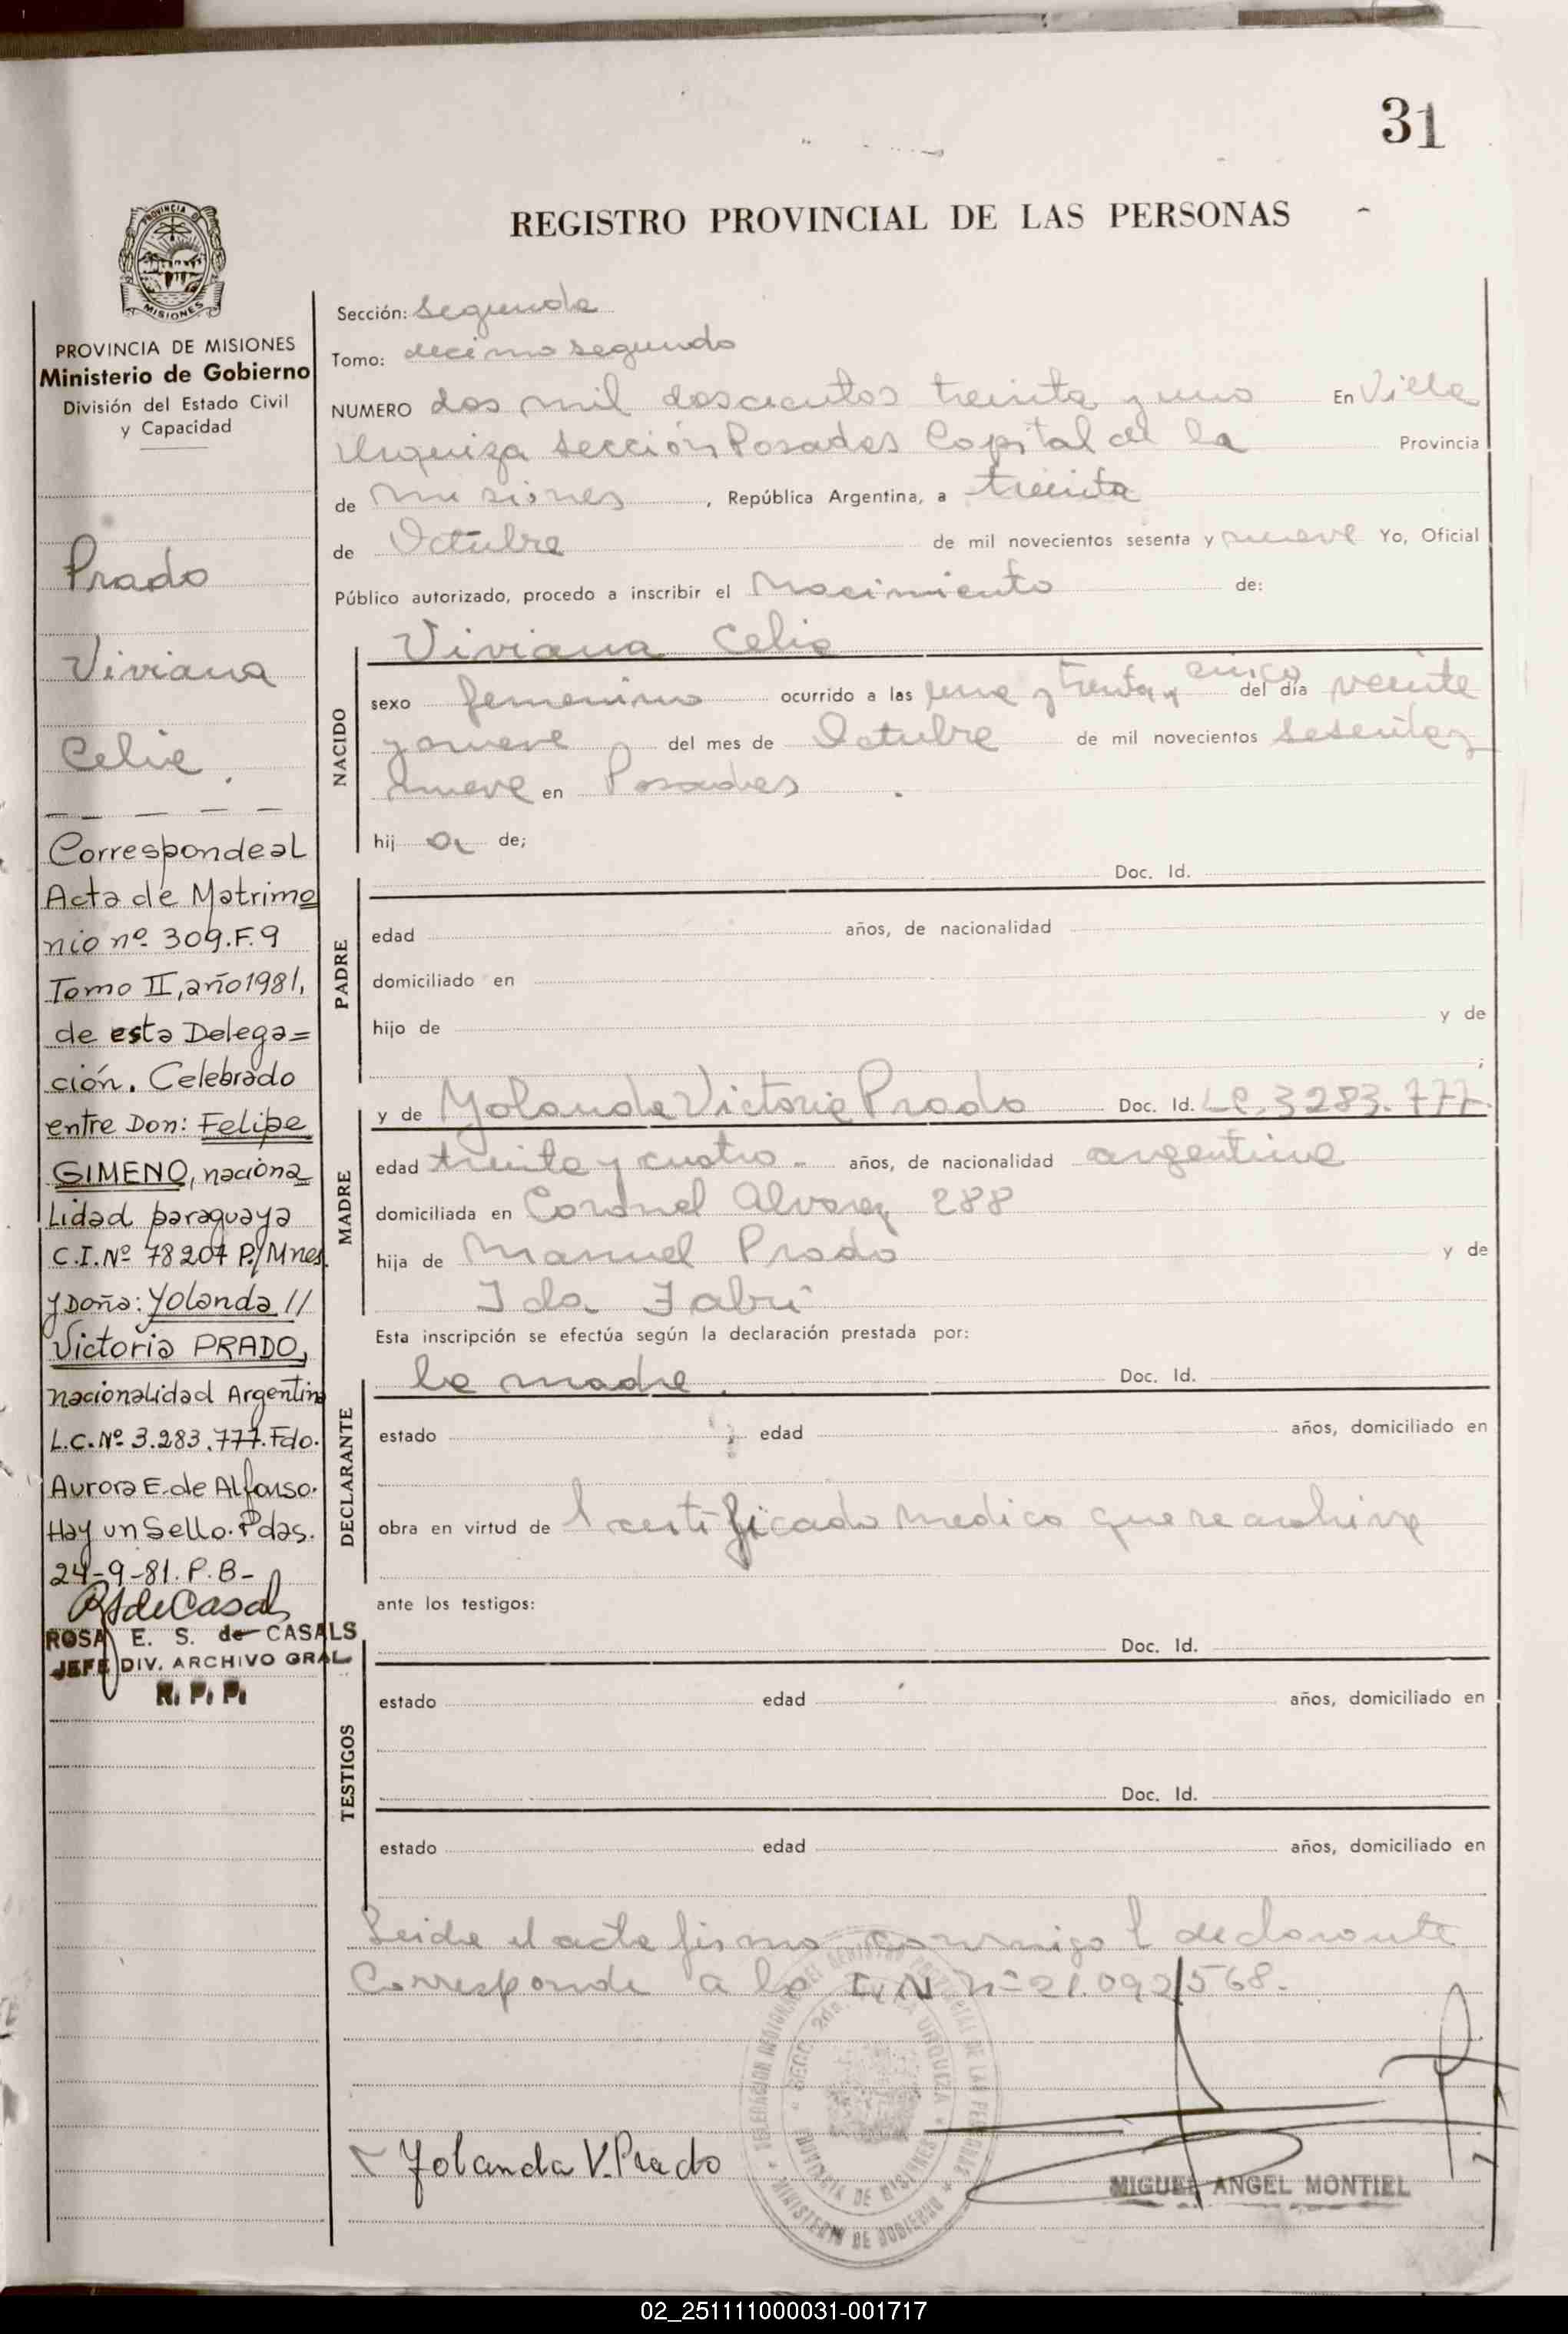 31
REGISTRO PROVINCIAL DE LAS PERSONAS
PROVINCIA DE MISIONES
PROVINCIA DE MISIONES
Ministerio de Gobierno
División del Estado Civil
y Capacidad
Prado
Viviana
Celia.
Corresponde al
Acta de Matrimo
nio nº 309.F.9
Tomo II, año 1981,
de esta Delega=
ción. Celebrado
entre Don: Felipe
GIMENO, naciona
Lidad paraguaya
C.I.Nº 78204 P./Mnes.
y Doña: Yolanda //
Victoria PRADO,
nacionalidad Argentina
L.C.Nº 3.283.777. Fdo.
Aurora E. de Alfonso.
Hay un Sello. Pdas.
24-9-81. P.B-
ROSA E. S. de CASALS
JEFE DIV. ARCHIVO GRAL
R. P. P.
Sección: Segunda
Tomo: decimo segundo
NUMERO dos mil doscientos treinta y uno En Villa
Urquiza Sección Posadas Capital de la Provincia
de Misiones, República Argentina, a treinta
de Octubre de mil novecientos sesenta y nueve Yo, Oficial
Público autorizado, procedo a inscribir el Nacimiento de:
NACIDO
Viviana Celia
sexo femenino ocurrido a las una y treinta y cinco del día veinte
y nueve del mes de Octubre de mil novecientos sesenta y
nueve en Posadas.
hij a de;
PADRE
Doc. Id.
edad años, de nacionalidad
domiciliado en
hijo de y de
;
MADRE
y de Yolanda Victoria Prado Doc. Id. LC. 3283.777
edad treinta y cuatro años, de nacionalidad argentina
domiciliada en Coronel Alvarez 288
hija de Manuel Prado y de
Ida Fabri
Esta inscripción se efectúa según la declaración prestada por:
DECLARANTE
la madre. Doc. Id.
estado edad años, domiciliado en
obra en virtud de l certificado medico que se archiva
ante los testigos:
TESTIGOS
Doc. Id.
estado edad años, domiciliado en
Doc. Id.
estado edad años, domiciliado en
Leida el acta firma conmigo l declarante
Corresponde a la nº 21.092568.
DELEGACION REGISTRO PROVINCIAL DE LAS PERSONAS
SECC. 2da. URQUIZA
PROVINCIA DE MISIONES
MINISTERIO DE GOBIERNO
Yolanda V. Prado
MIGUEL ANGEL MONTIEL
02_251111000031-001717